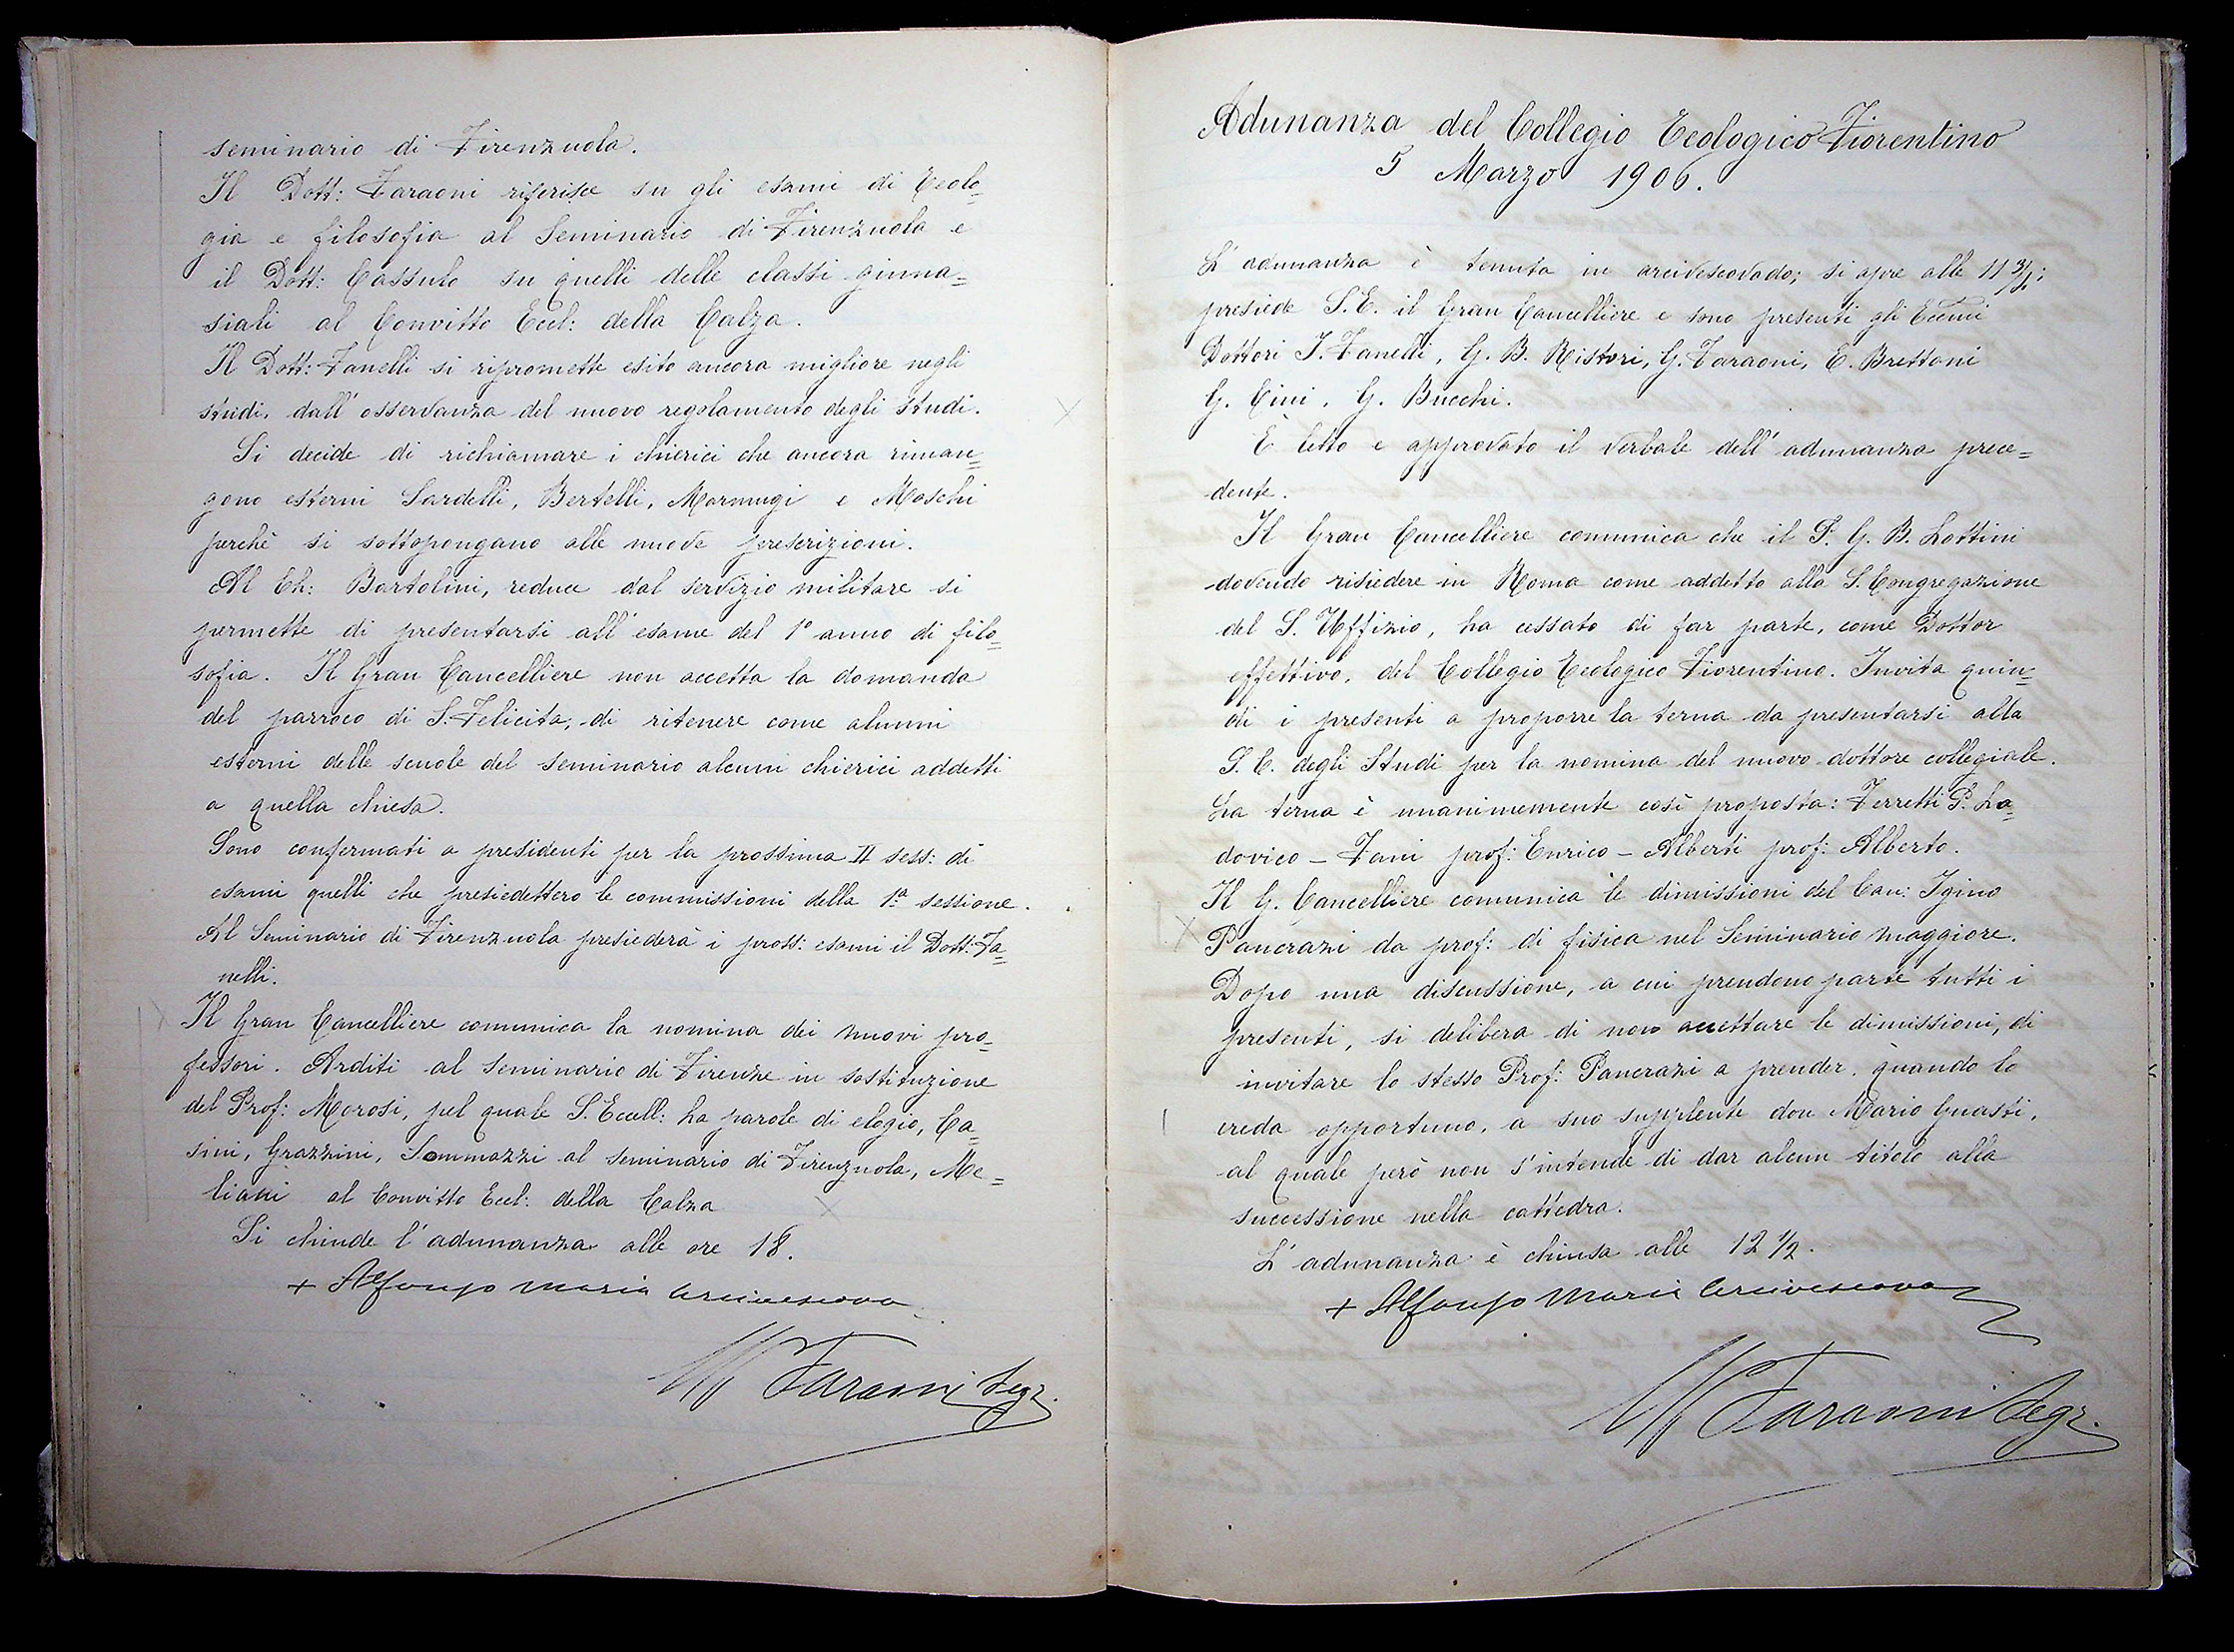 seminario di Firenzuola.
Il Dott: Faraoni riferisce su gli esami di Teolo=
gia e filosofia al Seminario di Firenzuola e
il Dott: Cassulo su quelli delle classi ginna=
siali al Convitto Eccl: della Calza.
Il Dott: Fanelli si ripromette esito ancora migliore negli
studi, dall'osservanza del nuovo regolamento degli studi.
Si decide di richiamare i chierici che ancora riman=
gono esterni Sardelli, Bertelli, Marmugi e Moschi
perchè si sottopongano alle nuove prescrizioni.
Al Ch: Bartolini, reduce dal servizio militare si
permette di presentarsi all'esame del 1° anno di filo=
sofia. Il Gran Cancelliere non accetta la domanda
del parroco di S. Felicita, di ritenere come alunni
esterni delle scuole del seminario alcuni chierici addetti
a quella chiesa.
Sono confermati a presidenti per la prossima II sess: di
esami quelli che presiedettero le commissioni della 1ª sessione.
Al Seminario di Firenzuola presiederà i pross: esami il Dott: Fa=
nelli.
Il Gran Cancelliere comunica la nomina dei nuovi pro=
fessori. Arditi al seminario di Firenze in sostituzione
del Prof: Morosi, pel quale S. Eccell: ha parole di elogio, Ca=
sini, Grazzini, Sommazzi al seminario di Firenzuola, Me=
liani al Convitto Eccl: della Calza
Si chiude l'adunanza alle ore 18.
+ Alfonso Maria Arcivescovo
Faraoni Segr.
Adunanza del Collegio Teologico Fiorentino
5 Marzo 1906.
L'adunanza è tenuta in arcivescovado; si apre alle 11 3/4;
presiede S. E. il Gran Cancelliere e sono presenti gli Eccmi
Dottori I. Fanelli, G. B. Ristori, G. Faraoni, E. Brettoni
G. Cini, G. Bucchi.
È letto e approvato il verbale dell'adunanza prece=
dente.
Il Gran Cancelliere comunica che il P. G. B. Lottini
dovendo risiedere in Roma come addetto alla S. Congregazione
del S. Uffizio, ha cessato di far parte, come Dottor
effettivo, del Collegio Teologico Fiorentino. Invita quin=
di i presenti a proporre la terna da presentarsi alla
S. C. degli Studi per la nomina del nuovo dottore collegiale.
La terna è unanimemente così proposta: Ferretti P. Lo=
dovico - Fani prof: Enrico - Alberti prof: Alberto.
Il G. Cancelliere comunica le dimissioni del Can: Igino
Pancrazi da prof: di fisica nel Seminario maggiore.
Dopo una discussione, a cui prendono parte tutti i
presenti, si delibera di non accettare le dimissioni, di
invitare lo stesso Prof: Pancrazi a prender, quando lo
creda opportuno, a suo supplente don Mario Guasti,
al quale però non s'intende di dar alcun titolo alla
successione nella cattedra.
L'adunanza è chiusa alle 12 1/2.
+ Alfonso Maria Arcivescovo
Faraoni Segr.